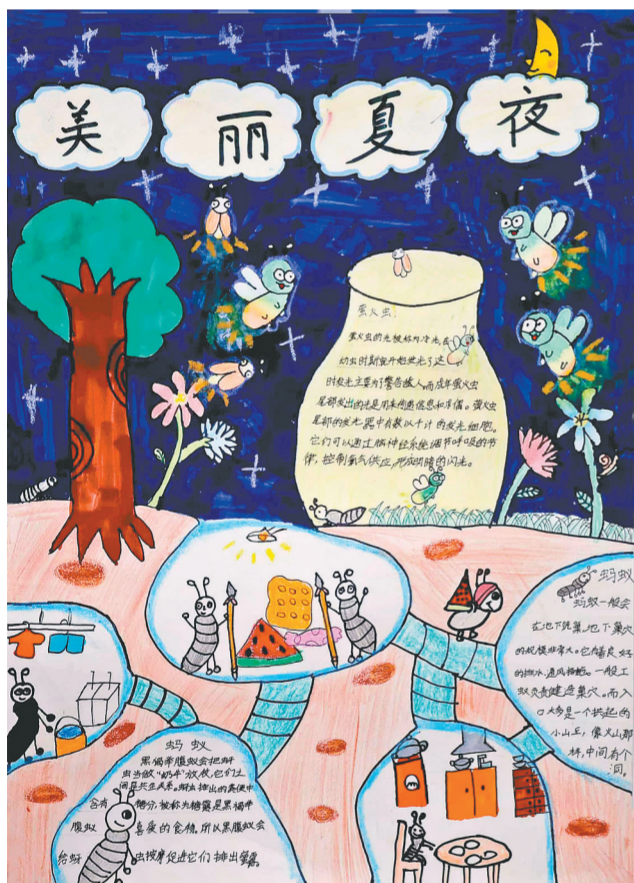 美丽夏夜
萤火虫:
萤火虫的光被称为冷光,在
幼虫时期便开始发光了,这
时发光主要为了警告敌人。而成年萤火虫
尾部发出的光是用来沟通信息和求偶。萤火虫
尾部的发光器中有数以千计的发光细胞。
它们可以通过脑神经系统调节呼吸的节
律,控制氧气供应,形成明暗的闪光。
蚂蚁
蚂蚁一般会
在地下筑巢,地下巢穴
的规模非常大。它有良好
的排水、通风措施。一般工
蚁负责建造巢穴。而入
口大多是一个拱起的
小山丘,像火山那
样,中间有个
洞。
蚂蚁
黑褐举腹蚁会把蚜
虫当做“奶牛”放牧,它们之
间是共生关系。蚜虫排出的粪便中
含有糖分,被称为糖露是黑褐举
腹蚁喜爱的食物,所以黑腹蚁会
给蚜虫按摩促进它们排出蜜露。